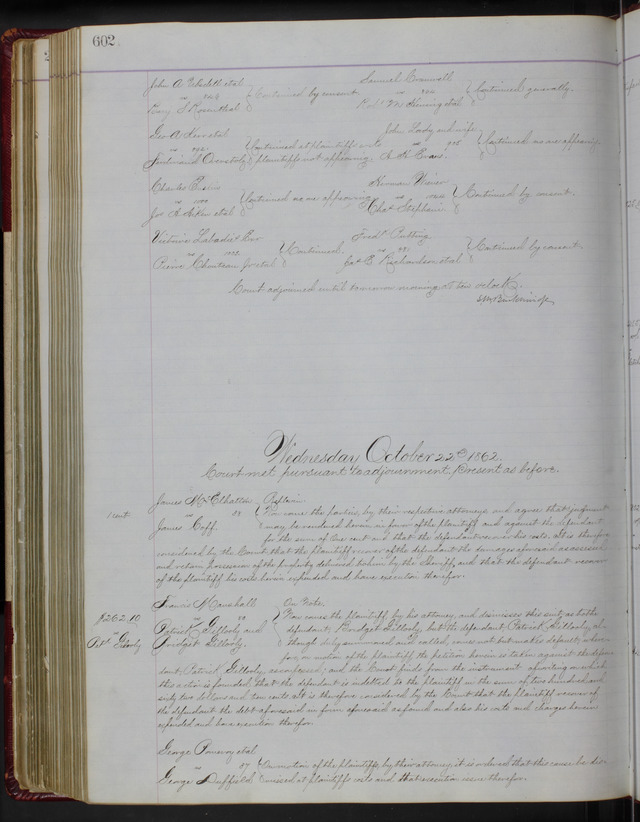 602
John A. et al
Continued by consent
vs 
Rosenthal
Samuel
vs
et al
Continued generally.
Geo. A. et al
vs
Ferdinand
Continued at plaintiffs costs
plaintiff not appearing.
John Lady and wife
vs
A. H. Evans.
Continued no one appearing.
Charles
vs
Jos. A. et al
Continued no one appearing
Herman
vs
Chas. Stephani
Continued by consent.
Victoire Labadie
vs
Pierre Chouteau Jr et al
Continued
Fredk.
vs
Richardson et al
Continued by consent.
Court adjourned until tomorrow morning at ten oclock.
Wednesday October 22d 1862.
Court met pursuant to adjournment, Present as before.
James McElhatton
vs 38
James Goff.
1 cent
Replevin.
Now come the parties, by their respective attorneys and agree that judgment
may be rendered herein in favor of the plaintiff and against the defendant
for the sum of one cent and that the defendant recover his costs. It is therefore
considered by the Court that the plaintiff recover of the defendant the damages aforesaid assessed
and retain possession of the property delivered to him by the Sheriff, and that the defendant recover
of the plaintiff his costs herein expended and have execution therefor.
Francis Marshall
vs
Patrick Gillooly and
Bridget Gillooly.
$262.10
Gillooly
On Note.
Now comes the plaintiff, by his attorney, and dismisses this suit as to the
defendant, Bridget Gillooly, but the defendant Patrick Gillooly, al-
though duly summoned and called, comes not but makes default; where-
fore, on motion of the plaintiff the petition herein is taken against the defen-
dant Patrick Gillooly, as confessed; and the Court finds from the instrument of writing on which
this action is founded, that the defendant is indebted to the plaintiff in the sum of two hundred and
sixty two dollars and ten cents. It is therefore considered by the Court that the plaintiff recover of
the defendant the debt aforesaid in form aforesaid as found and also his costs and charges herein
expended and have execution therefor.
George Pomeroy et al
vs 87
George Duffield
On motion of the plaintiffs, by their attorney, it is ordered that this cause be dis-
missed at plaintiffs costs and that execution issue therefor.